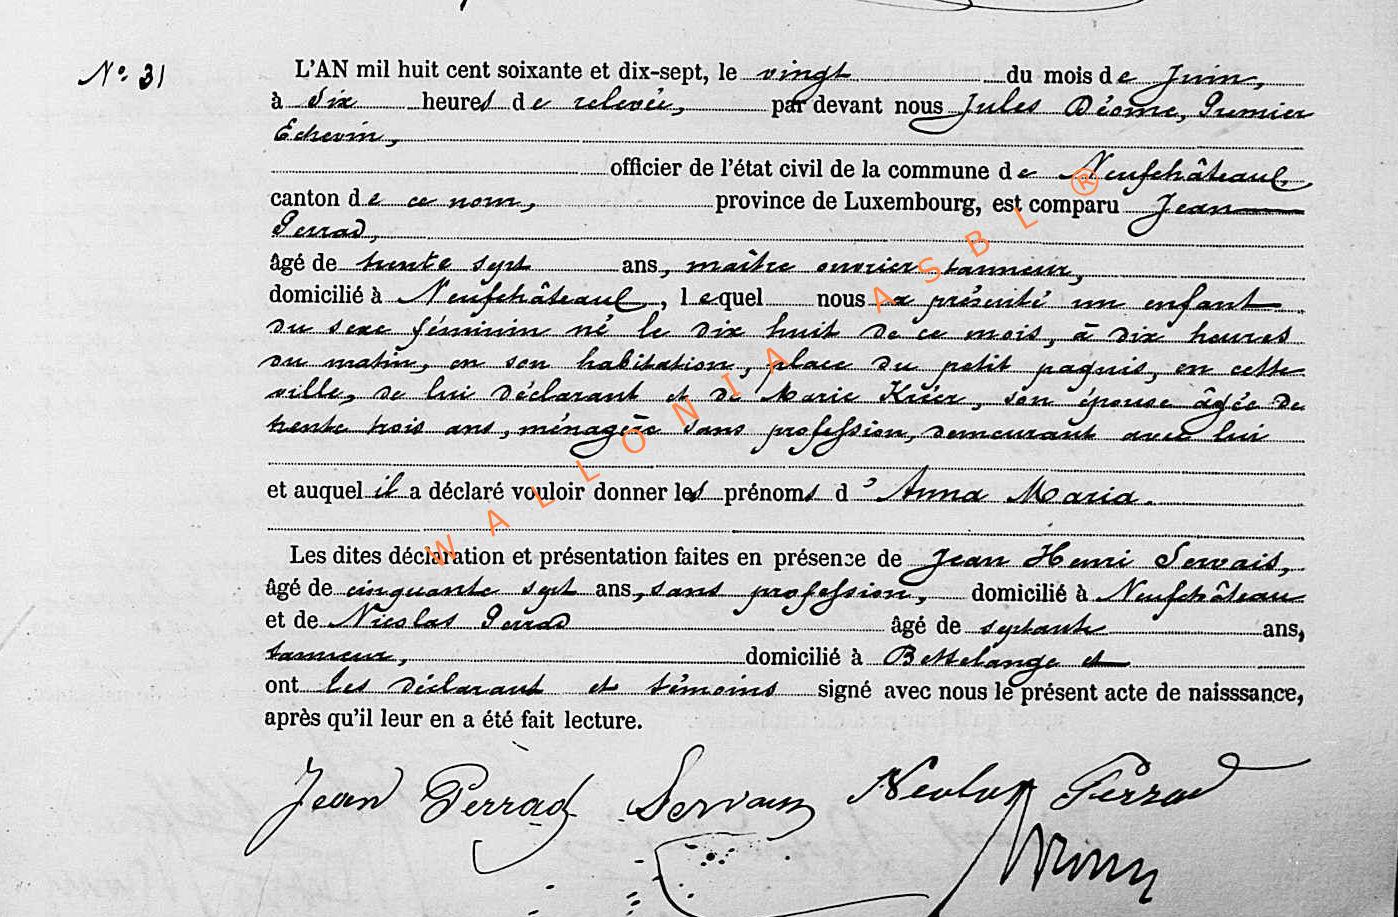 N° 31
L'AN mil huit cent soixante et dix-sept, le vingt du mois de Juin,
à Six heures de relevée, par devant nous Jules Déome, Premier
Echevin,
officier de l'état civil de la commune de Neufchâteau,
canton de ce nom, province de Luxembourg, est comparu Jean
Perrad,
âgé de trente sept ans, maître ouvrier tanneur,
domicilié à Neufchâteau, lequel nous a présenté un enfant
du sexe féminin né le dix huit de ce mois, à dix heures
du matin, en son habitation, place du petit paquis, en cette
ville, de lui déclarant et de Marie Krier, son épouse âgée de
trente trois ans, ménagère sans profession, demeurant avec lui
et auquel il a déclaré vouloir donner les prénoms d'Anna Maria.
Les dites déclaration et présentation faites en présence de Jean Henri Servais,
âgé de cinquante sept ans, sans profession, domicilié à Neufchâteau
et de Nicolas Perrad âgé de septante ans,
tanneur, domicilié à Bettelange et
ont les déclarant et témoins signé avec nous le présent acte de naisssance,
après qu'il leur en a été fait lecture.
Jean Perrad Servais Nicolas Perrad
WALLONIA ASBL ®